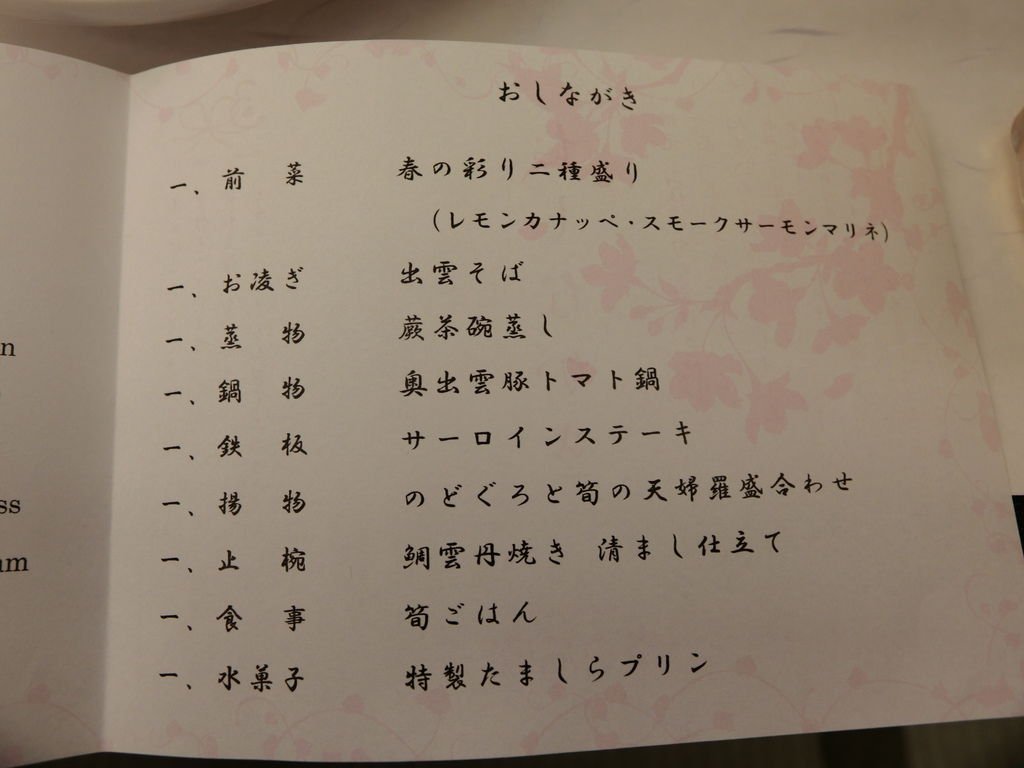 おしながき
一、前菜 春の彩り二種盛り
(レモンカナッペ・スモークサーモンマリネ)
一、お凌ぎ 出雲そば
一、蒸物 蕨茶碗蒸し
一、鍋物 奥出雲豚トマト鍋
一、鉄板 サーロインステーキ
一、揚物 のどぐろと筍の天婦羅盛合わせ
一、止椀 鯛雲丹焼き 清まし仕立て
一、食事 筍ごはん
一、水菓子 特製たましらプリン